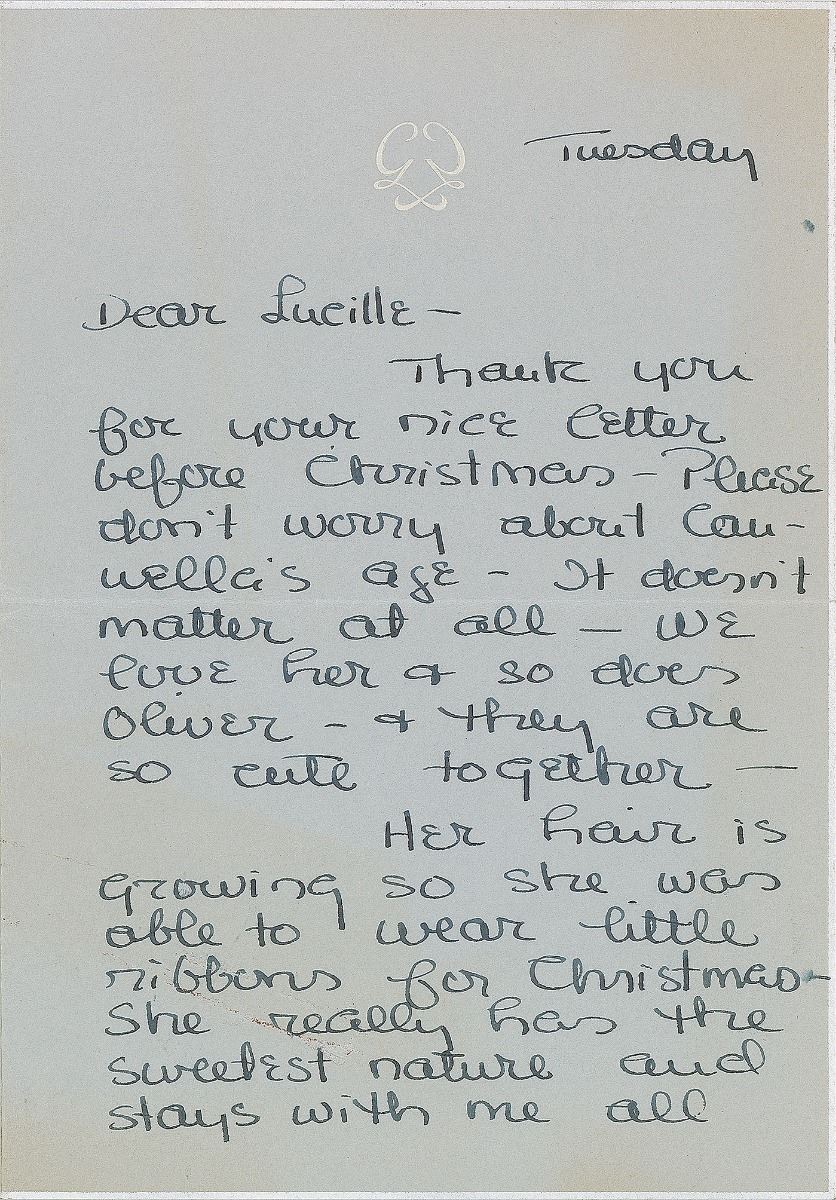 Tuesday
Dear Lucille —
Thank you
for your nice letter
before Christmas - Please
don't worry about Cau-
nella's age - It doesn't
matter at all — We
love her & so does
Oliver - & they are
so cute together —
Her hair is
growing so she was
able to wear little
ribbons for Christmas -
She really has the
sweetest nature and
stays with me all